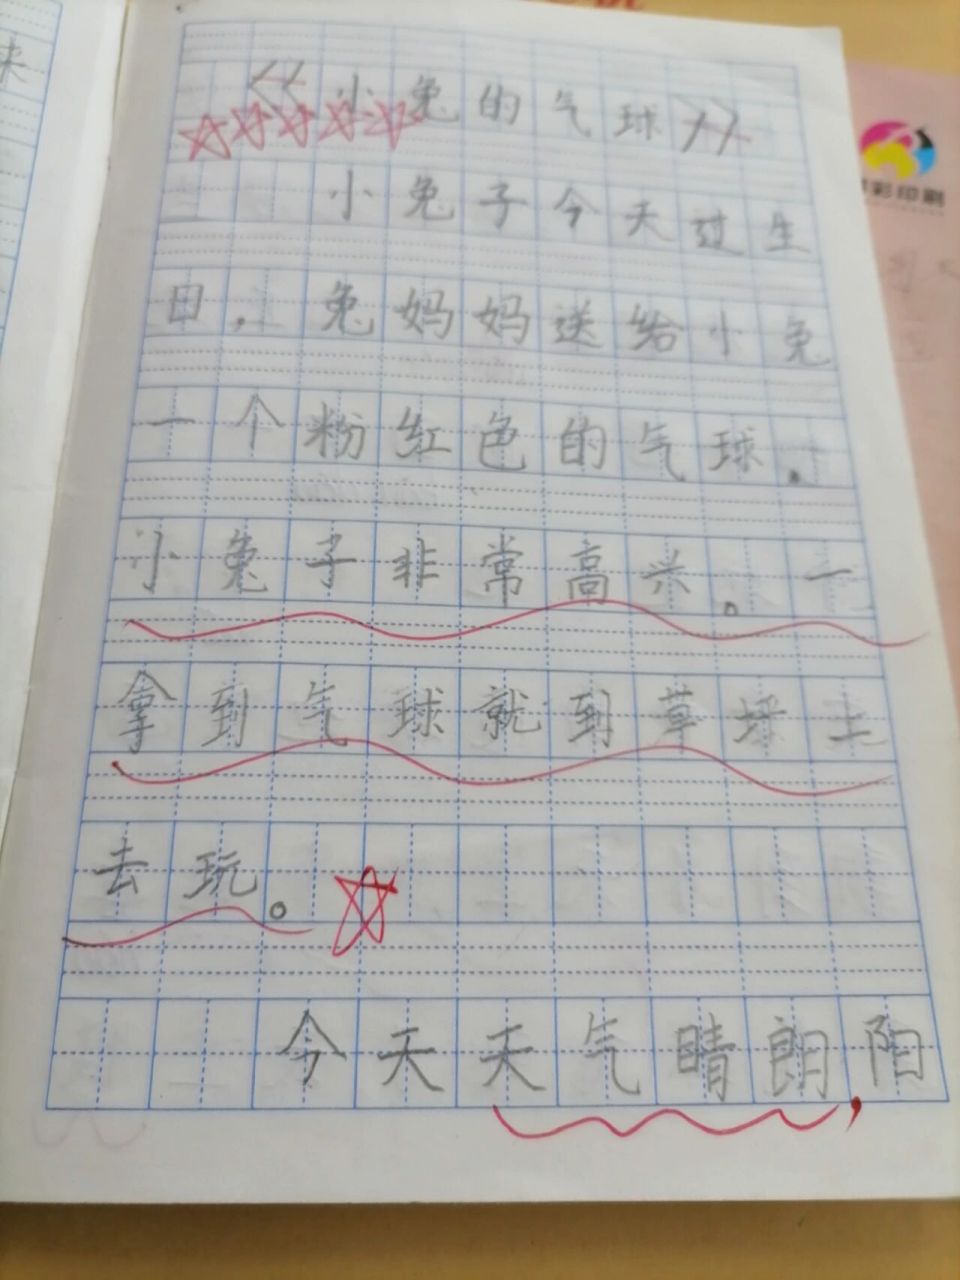 来
《小兔的气球》
小兔子今天过生
日，兔妈妈送给小兔
一个粉红色的气球.
小兔子非常高兴。一
拿到气球就到草坪上
去玩。
今天天气晴朗,阳
彩印刷